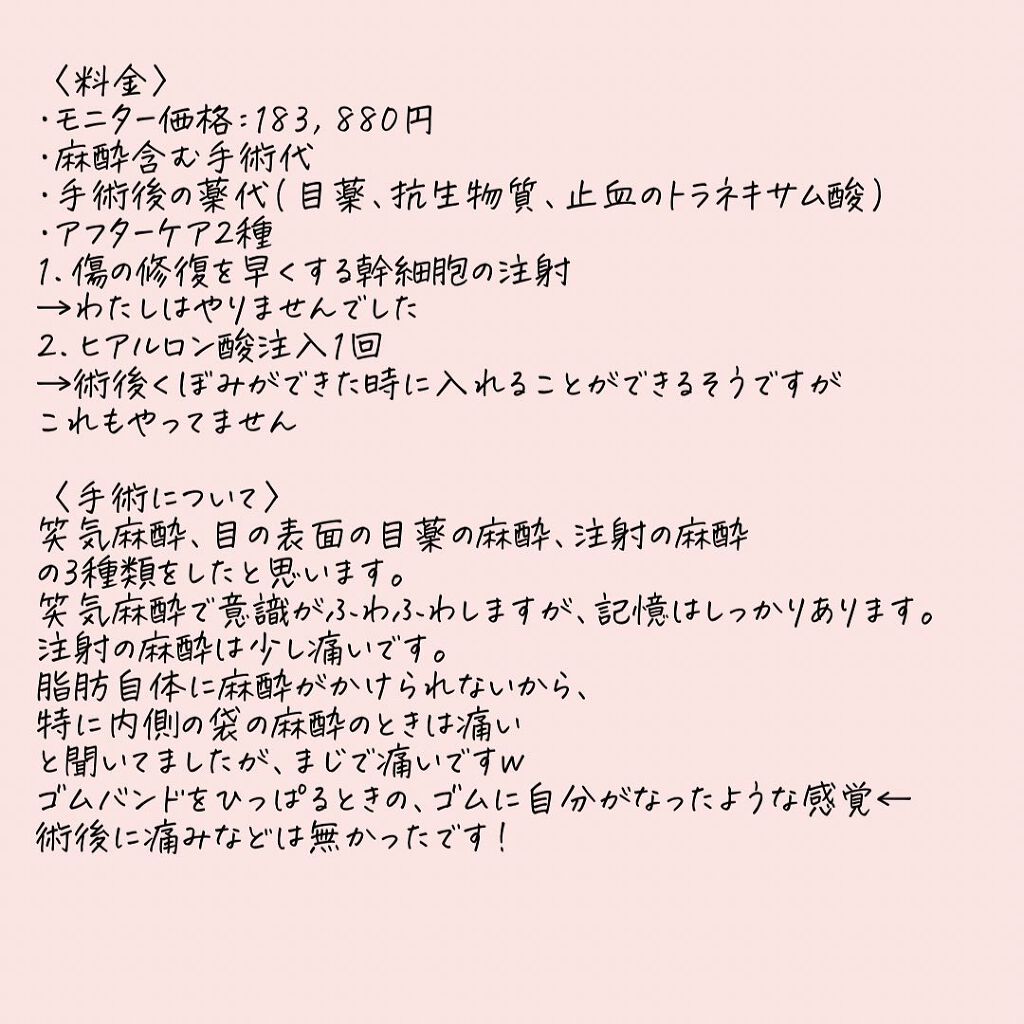 〈料金〉
・モニター価格：183,880円
・麻酔含む手術代
・手術後の薬代(目薬、抗生物質、止血のトラネキサム酸)
・アフターケア2種
1.傷の修復を早くする幹細胞の注射
→わたしはやりませんでした
2.ヒアルロン酸注入1回
→術後くぼみができた時に入れることができるそうですが
これもやってません
〈手術について〉
笑気麻酔、目の表面の目薬の麻酔、注射の麻酔
の3種類をしたと思います。
笑気麻酔で意識がふわふわしますが、記憶はしっかりあります。
注射の麻酔は少し痛いです。
脂肪自体に麻酔がかけられないから、
特に内側の袋の麻酔のときは痛い
と聞いてましたが、まじで痛いですw
ゴムバンドをひっぱるときの、ゴムに自分がなったような感覚←
術後に痛みなどは無かったです!